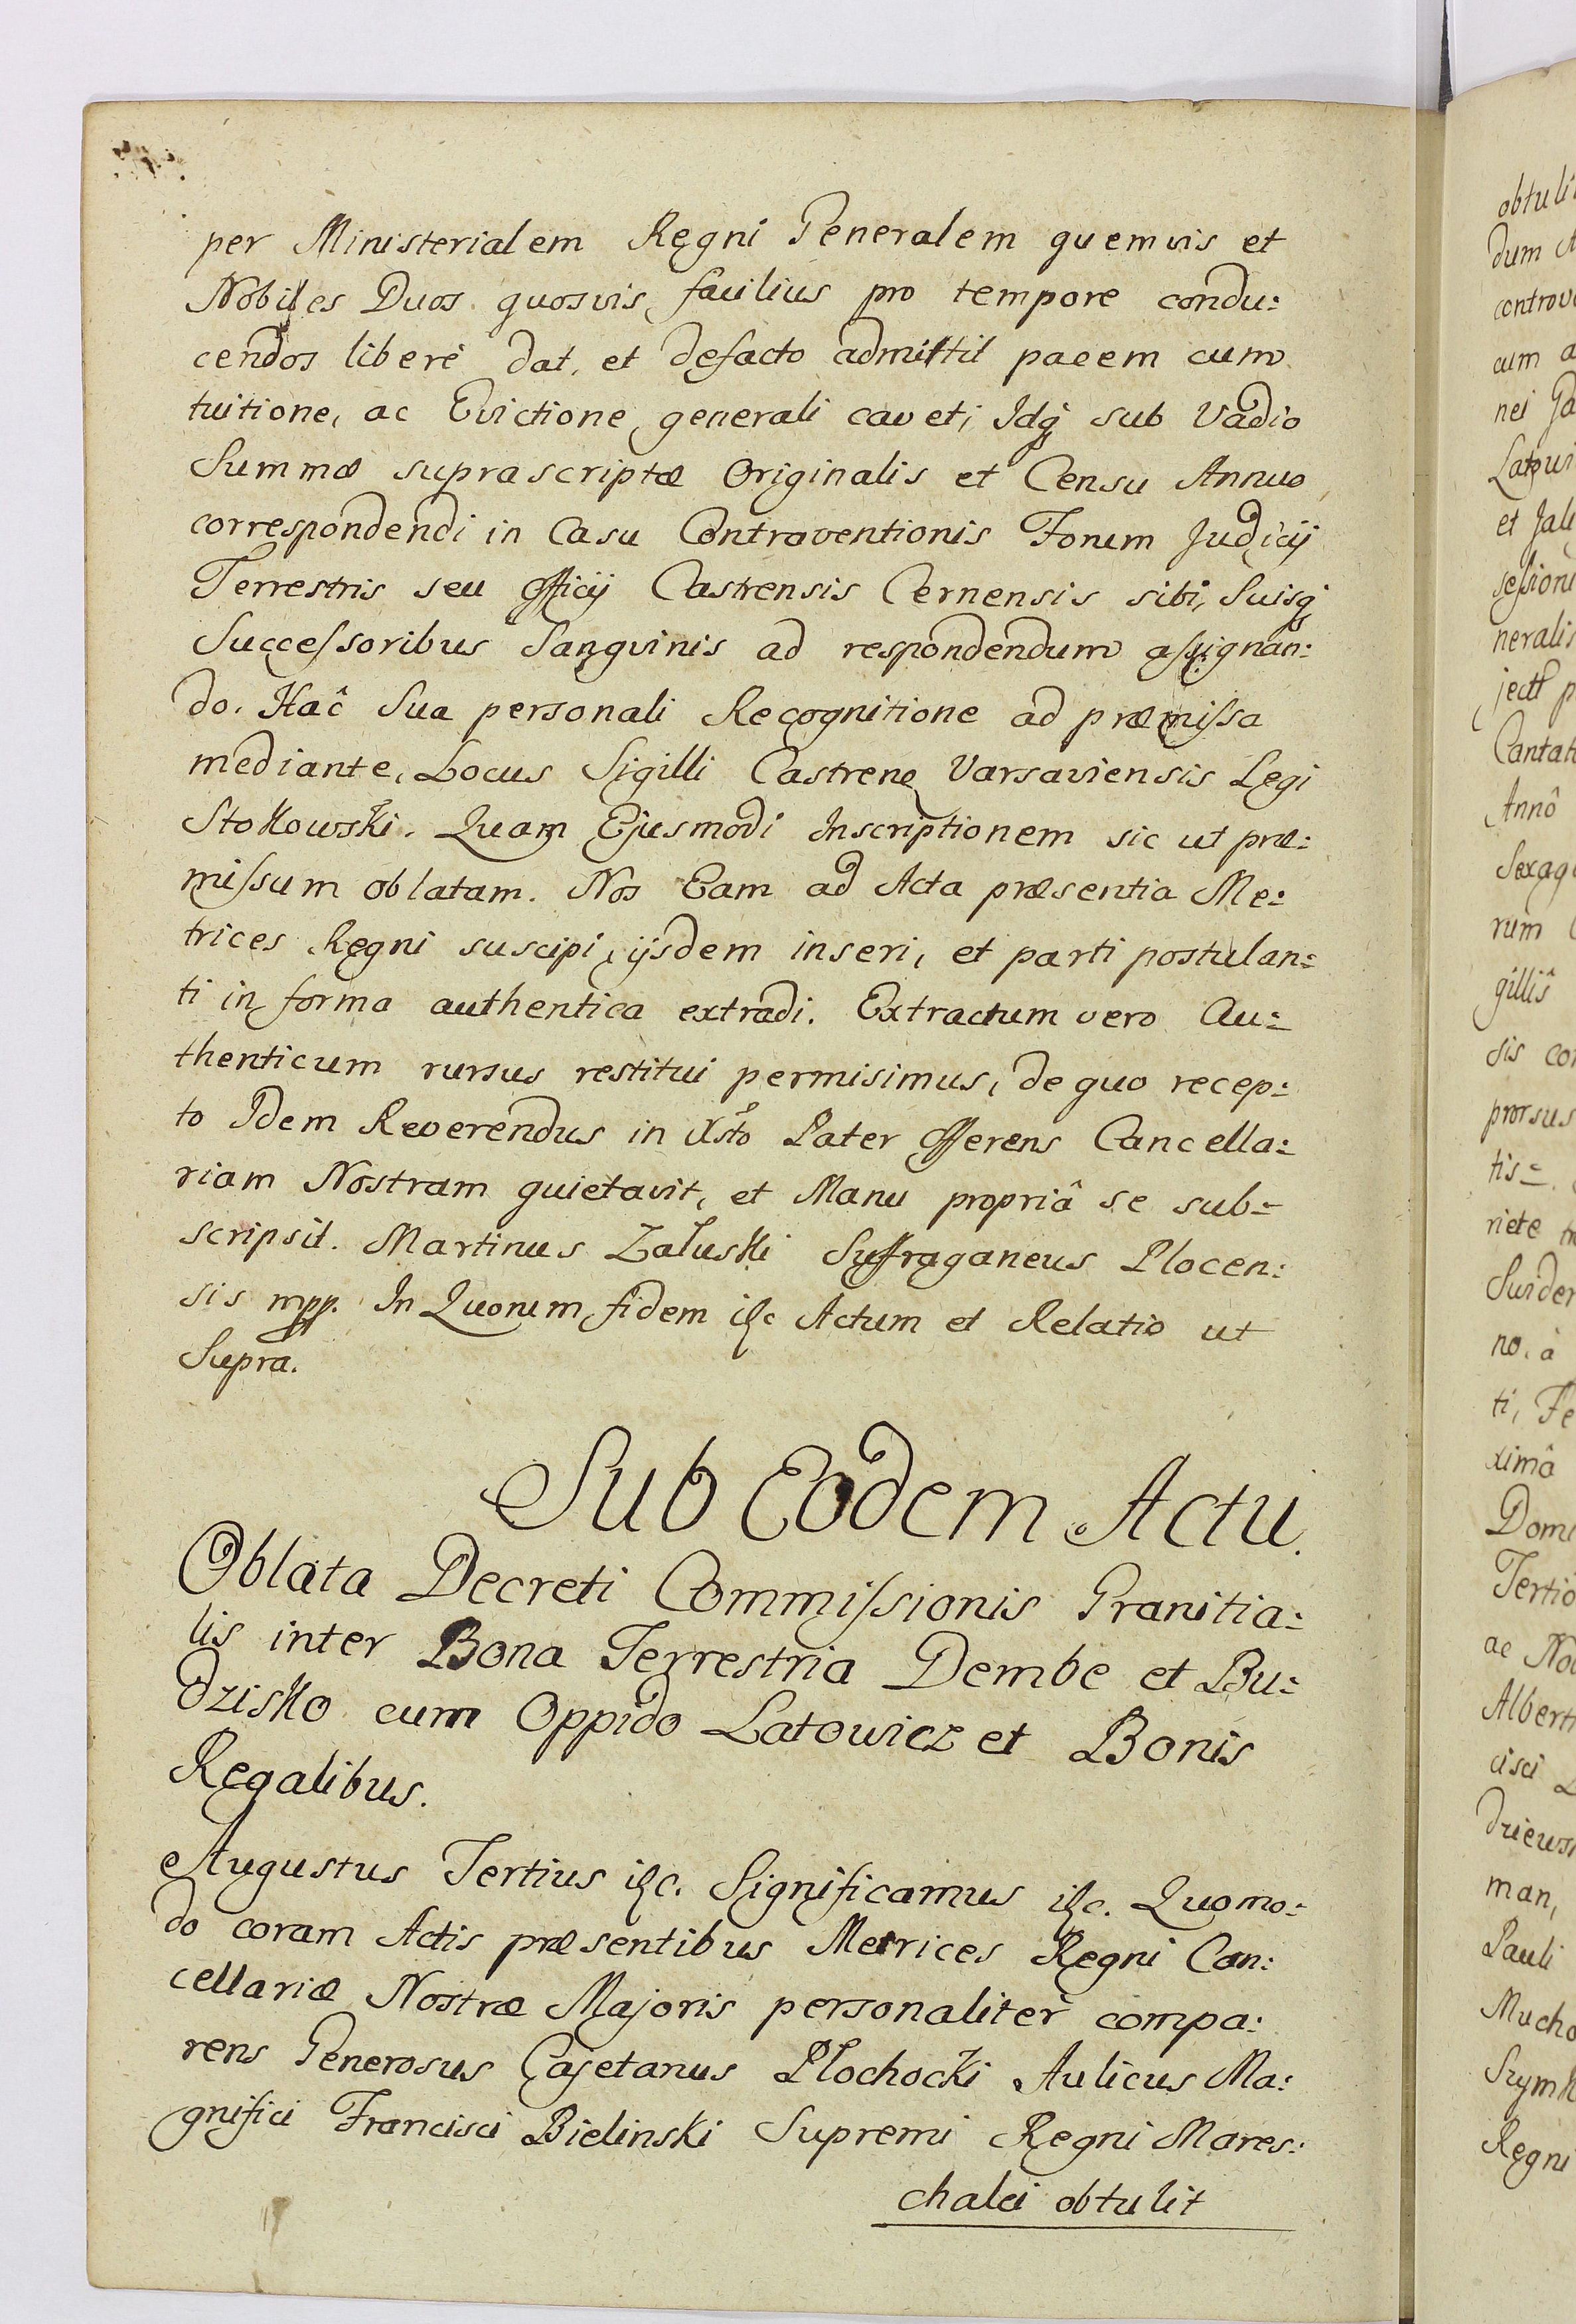 per Ministerialem Regni Generalem quemvis et
Nobiles Duos quosvis facilius pro tempore condu:
cendos liberè dat, et defacto admittit pacem cum
tuitione, ac Evictione generali cavet, Idq sub Vadio
Summæ suprascriptæ Originalis et Censu Annuo
correspondendi in Casu Contraventionis Forum Judicij
Terrestris seu Officij Castrensis Cernensis sibi, Suisq
Successoribus Sanguinis ad respondendum assignan:
do. Hac̑ Sua personali Recognitione ad præmissa
mediante, Locus Sigilli Castrens Varsaviensis Legi
Stokowski. Quam Ejusmodi Inscriptionem sic ut præ:
missum oblatam. Nos Eam ad Acta præsentia Me:
trices Regni suscipi, ijsdem inseri, et parti postulan:
ti in forma authentica extradi. Extractum vero Au:
thenticum rursus restitui permisimus, de quo recep:
to Idem Reverendus in Xsto Pater Offerens Cancella:
riam Nostram quietavit, et Manu propriâ se sub:
scripsit. Martinus Załuski Suffraganeus Plocen:
sis mpp. In Quorum fidem &c Actum et Relatio ut
Supra.
Sub Eodem Actu.
Oblata Decreti Commissionis Granitia:
lis inter Bona Terrestria Dembe et Bu:
dzisko cum Oppido Latowicz et Bonis
Regalibus.
Augustus Tertius &c. Significamus &c. Quomo:
do coram Actis præsentibus Metrices Regni Can:
cellariæ Nostræ Majoris personaliter compa:
rens Generosus Cajetanus Płochocki Aulicus Ma:
gnifici Francisci Bielinski Supremi Regni Mares:
chalci obtulit